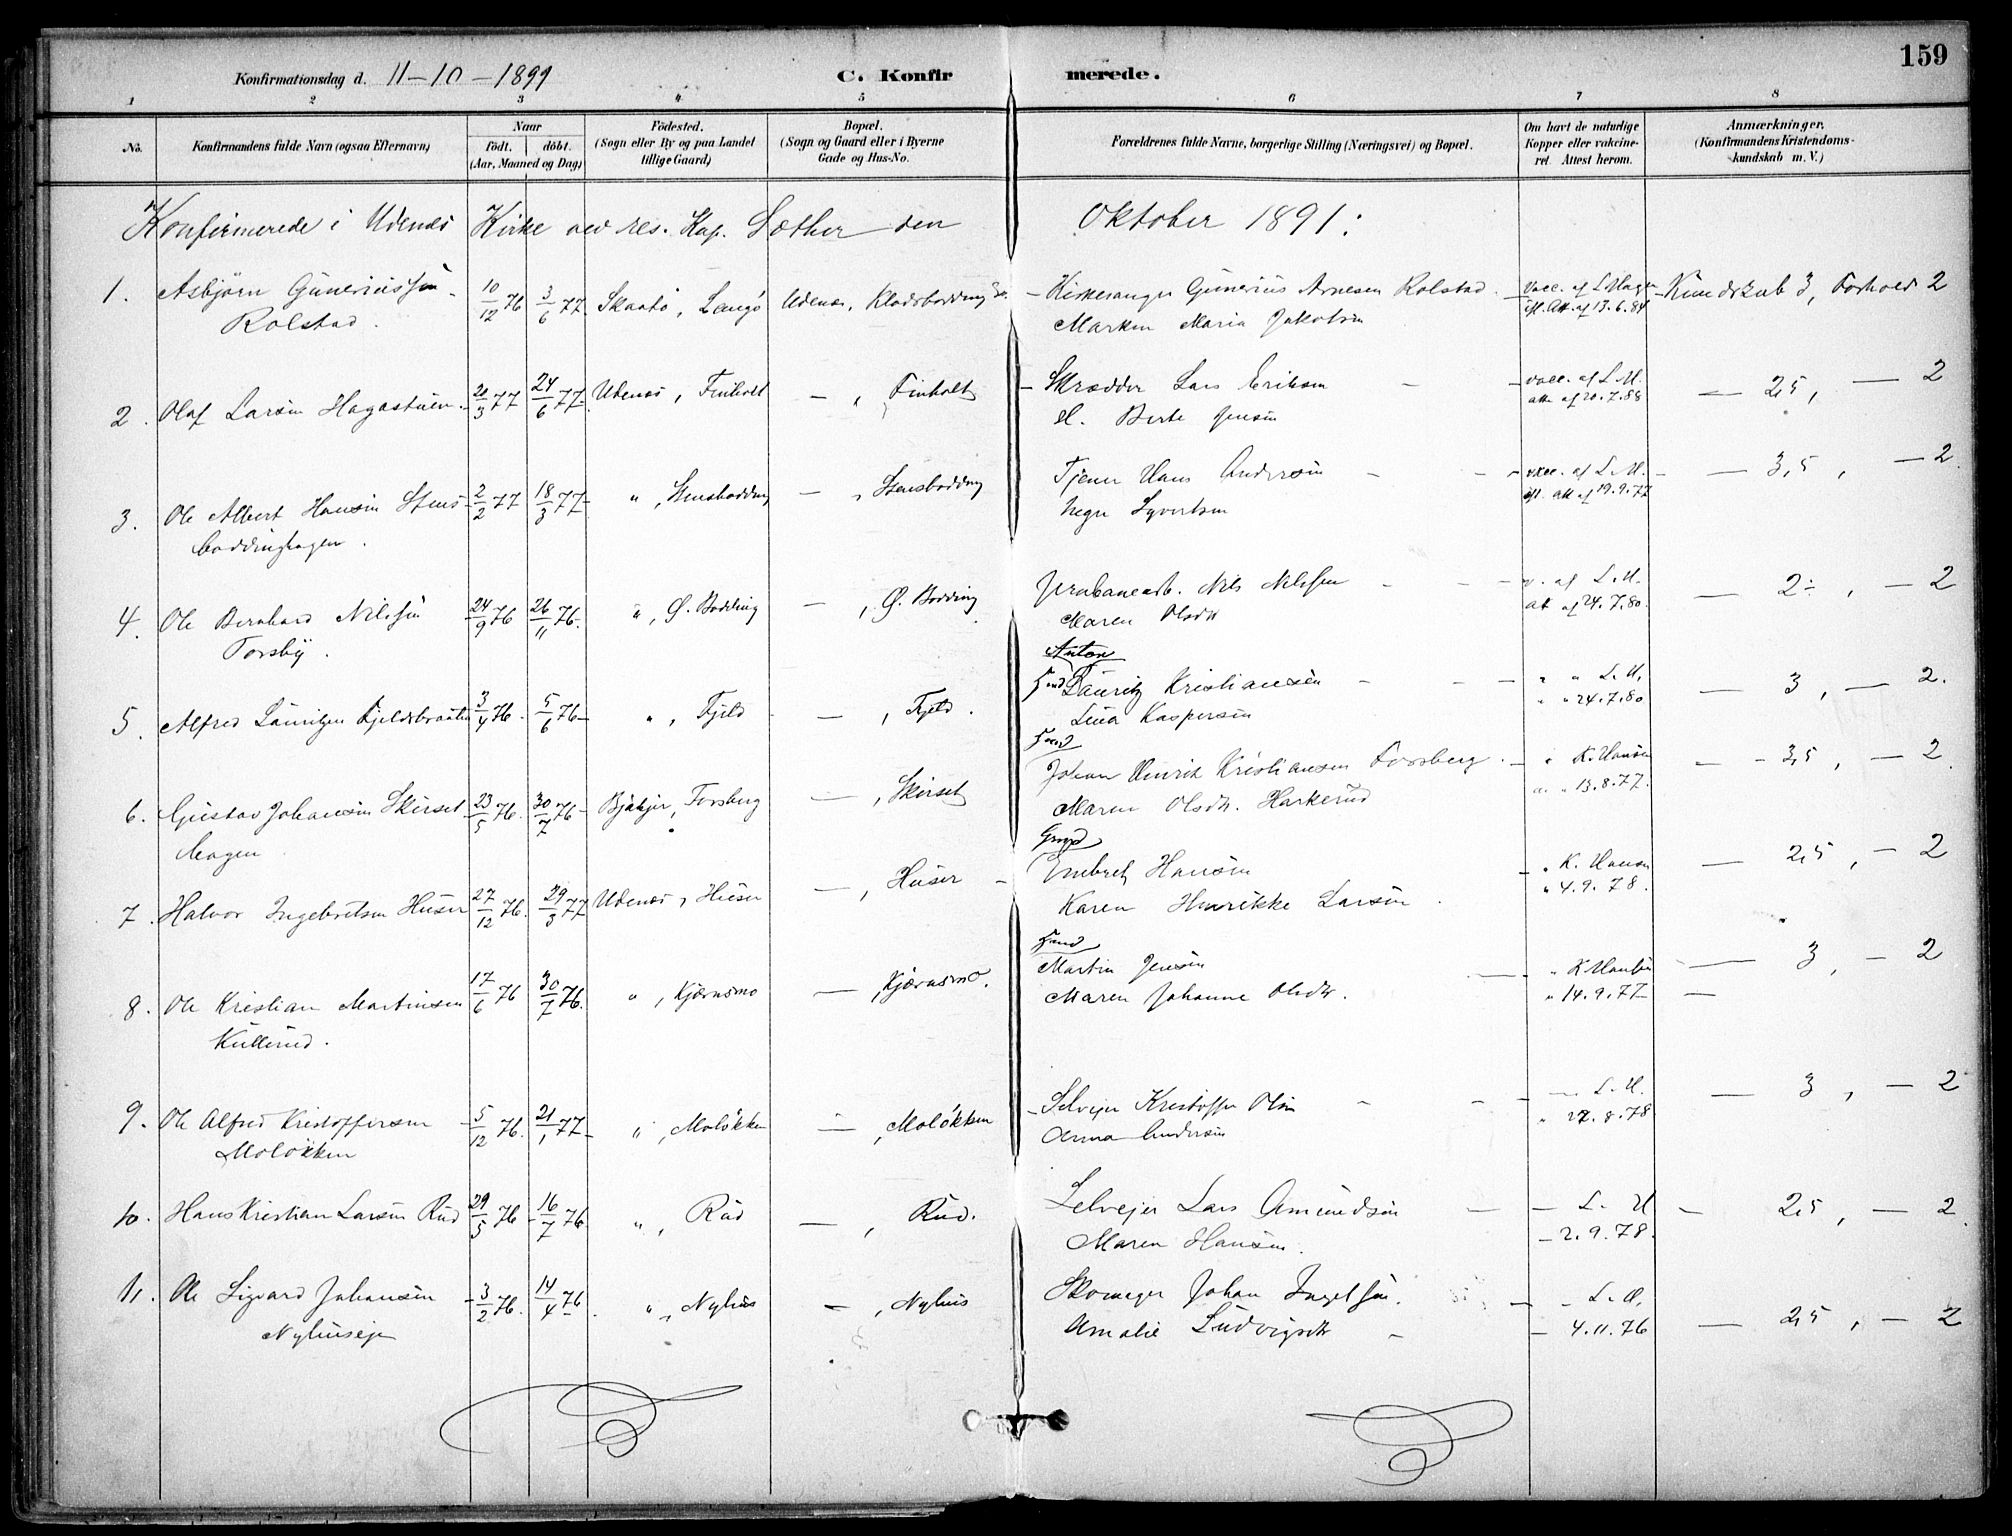 159
Konfirmationsdag d. 11-10-1899 C. Konfirmerede.
1 2 3 4 5 6 7 8
No. Konfirmandens fulde Navn (ogsaa Efternavn) Naar födt. döbt. (Aar, Maaned og Dag) Födested. (Sogn eller By og paa Landet tillige Gaard) Bopæl. (Sogn og Gaard eller i Byerne Gade og Hus-No. Forældrenes fulde Navne, borgerlige Stilling (Næringsvei) og Bopæl. Om havt de naturlige Kopper eller vakcineret. Attest herom. Anmærkninger. (Konfirmandens Kristendomskundskab m. V.)
Konfirmerede i Udenes Kirke ved res. Kap. Sæther den Oktober 1891:
1. Asbjörn Guneriussön 10/12 76 3/6 77 Skaatö, Langö Udenes, Kirkesanger Gunerius Arnesen Rolstad vacc. af Kundskab 3, Forhold 2
Rolstad. Maria Jakobsen att. af 13.6.84
2. Olaf Larsen Hagastuen 20/3 77 24/6 77 Udenes, Finholt — , Finholt Skrædder Lars Eriksen vacc. af L. M. — 2,5, — 2
H. Berte Jensen att. af 20.7.88
3. Ole Albert Hansen Stens- 2/2 77 18/3 77 " , Stensbodding — , Stensbodding Tjener Hans Andersen vacc. af L. M. — 3,5, — 2
boddinghagen. Syvertsen att. af 19.9.77
4. Ole Bernhard Nilsen 24/9 76 26/11 76 " , Ö. Bodding — , Ö. Bodding Jernbanearb. Nils Nilssen v. af L. M. — 2÷, — 2
Forsby. Maren Olsdtr att af 24.7.80.
Anton
5. Alfred Lauritzen Fjeldsbraaten 3/4 76 5/6 76 " , Fjeld — , Fjeld. Lauritz Kristiansen " " L. M. — 3, — 2.
Lina Kaspersen " " 24.7.80
6. Gustav Johansen Skirset- 23/5 76 30/7 76 , Forsberg — , Skirset Johan Henrik Kristiansen Forsberg " K. Hansen — 3,5, — 2
hagen Maren Olsdtr. Harkerud " 13.8.77
7. Halvor Ingebretsen Huser 27/12 76 29/3 77 Udenes, Huser — , Huser Embret Hansen " K. Hansen — 2,5, — 2
Karen Henrikke Larsen. " 4.9.78.
8. Ole Kristian Martinsen 17/6 76 30/7 76 " , Kjærnsmo — , Kjærnsmo. Martin Jensen " K Hansen — 3, — 2
Kullerud. Maren Johanne Olsdtr. " 14.9.77 —
9. Ole Alfred Kristoffersen 5/12 76 21/1 77 " , Molökken — , Molökken Selvejer Kristoffer Olsen — L. M. — 3, — 2
Molökken Anna Andersen " 27.8.78
10. Hans Kristian Larsen Rud 29/5 76 16/7 76 " , Rud — , Rud. Selvejer Lars Amundsen — L. M — 2,5, — 2
Maren Hansen. — 2.9.78.
11. Ole Sigvard Johansen 3/2 76 14/4 76 " , Nyhus — , Nyhus Skomager Johan — L. M.
Nyhuseje Amalie Ludvigsdtr — 4.11.76 — 2,5, — 2